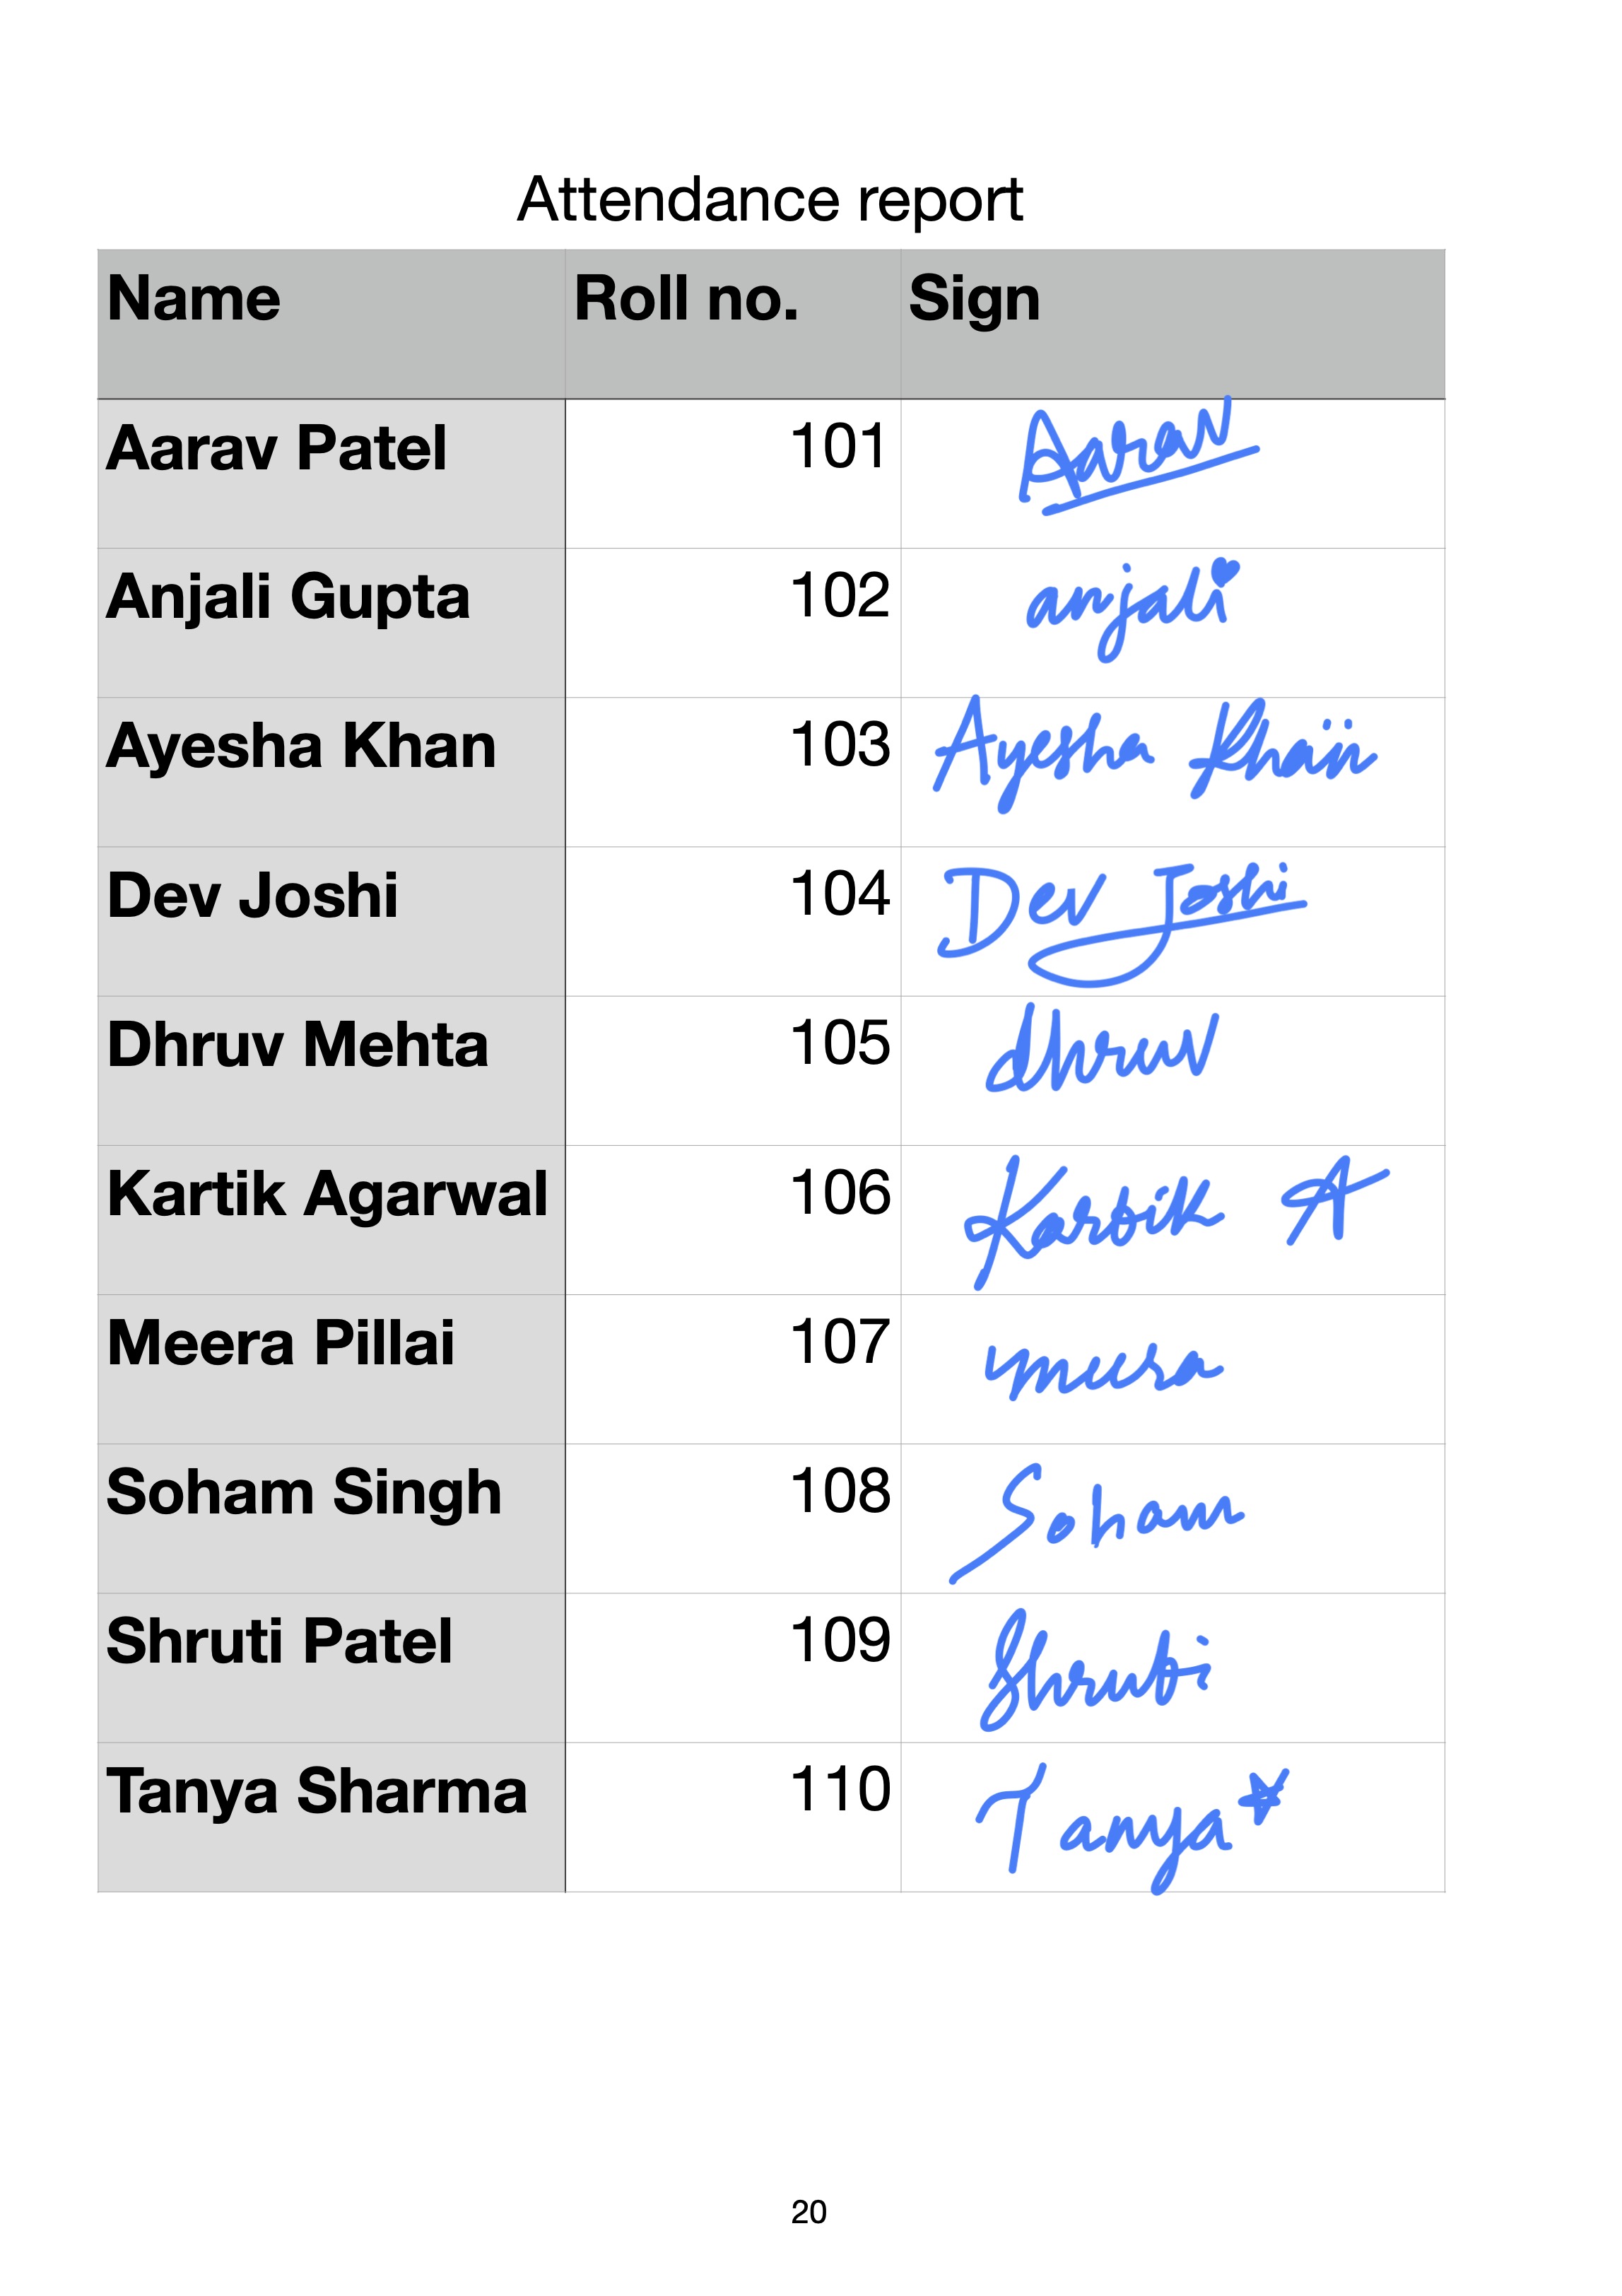 Attendance report
Name Roll no. Sign
Aarav Patel 101 Aarav
Anjali Gupta 102 anjali
Ayesha Khan 103 Ayesha Khan
Dev Joshi 104 Dev Joshi
Dhruv Mehta 105 dhruv
Kartik Agarwal 106 Kartik A
Meera Pillai 107 meera
Soham Singh 108 Soham
Shruti Patel 109 Shruti
Tanya Sharma 110 Tanya
20